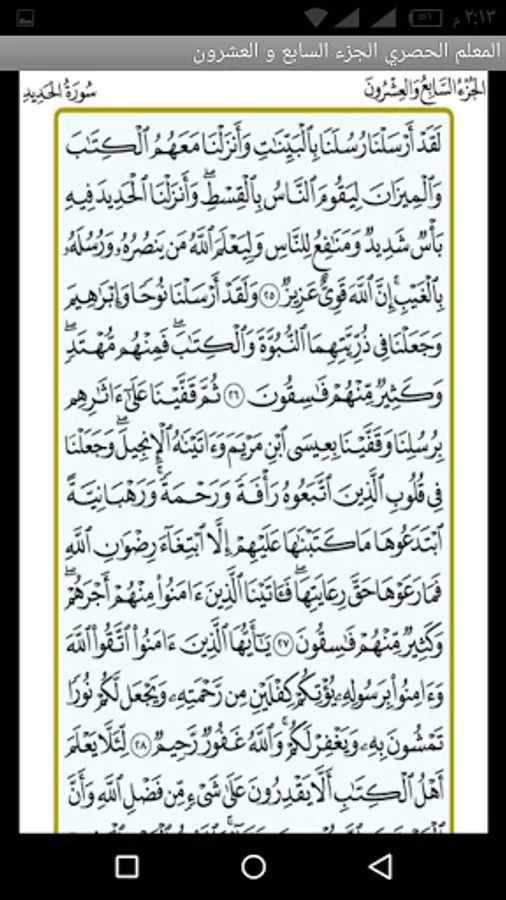 ٢:١٣ م
٥٦
المعلم الحصري الجزء السابع و العشرون
الجُزْءُ السَّابِعُ وَالعِشْرُونَ
سُورَةُ الحَدِيدِ
لَقَدْ أَرْسَلْنَا رُسُلَنَا بِالْبَيِّنَاتِ وَأَنزَلْنَا مَعَهُمُ الْكِتَابَ
وَالْمِيزَانَ لِيَقُومَ النَّاسُ بِالْقِسْطِ ۖ وَأَنزَلْنَا الْحَدِيدَ فِيهِ
بَأْسٌ شَدِيدٌ وَمَنَافِعُ لِلنَّاسِ وَلِيَعْلَمَ اللَّهُ مَن يَنصُرُهُ وَرُسُلَهُ
بِالْغَيْبِ ۚ إِنَّ اللَّهَ قَوِيٌّ عَزِيزٌ ٢٥ وَلَقَدْ أَرْسَلْنَا نُوحًا وَإِبْرَاهِيمَ
وَجَعَلْنَا فِي ذُرِّيَّتِهِمَا النُّبُوَّةَ وَالْكِتَابَ ۖ فَمِنْهُم مُّهْتَدٍ ۖ
وَكَثِيرٌ مِّنْهُمْ فَاسِقُونَ ٢٦ ثُمَّ قَفَّيْنَا عَلَىٰ ءَاثَارِهِم
بِرُسُلِنَا وَقَفَّيْنَا بِعِيسَى ابْنِ مَرْيَمَ وَءَاتَيْنَاهُ الْإِنجِيلَ ۖ وَجَعَلْنَا
فِي قُلُوبِ الَّذِينَ اتَّبَعُوهُ رَأْفَةً وَرَحْمَةً ۚ وَرَهْبَانِيَّةً
ابْتَدَعُوهَا مَا كَتَبْنَاهَا عَلَيْهِمْ إِلَّا ابْتِغَاءَ رِضْوَانِ اللَّهِ
فَمَا رَعَوْهَا حَقَّ رِعَايَتِهَا ۖ فَـَٔاتَيْنَا الَّذِينَ ءَامَنُوا مِنْهُمْ أَجْرَهُمْ ۖ
وَكَثِيرٌ مِّنْهُمْ فَاسِقُونَ ٢٧ يَا أَيُّهَا الَّذِينَ ءَامَنُوا اتَّقُوا اللَّهَ
وَءَامِنُوا بِرَسُولِهِ يُؤْتِكُمْ كِفْلَيْنِ مِن رَّحْمَتِهِ وَيَجْعَل لَّكُمْ نُورًا
تَمْشُونَ بِهِ وَيَغْفِرْ لَكُمْ ۚ وَاللَّهُ غَفُورٌ رَّحِيمٌ ٢٨ لِّئَلَّا يَعْلَمَ
أَهْلُ الْكِتَابِ أَلَّا يَقْدِرُونَ عَلَىٰ شَيْءٍ مِّن فَضْلِ اللَّهِ وَأَنَّ